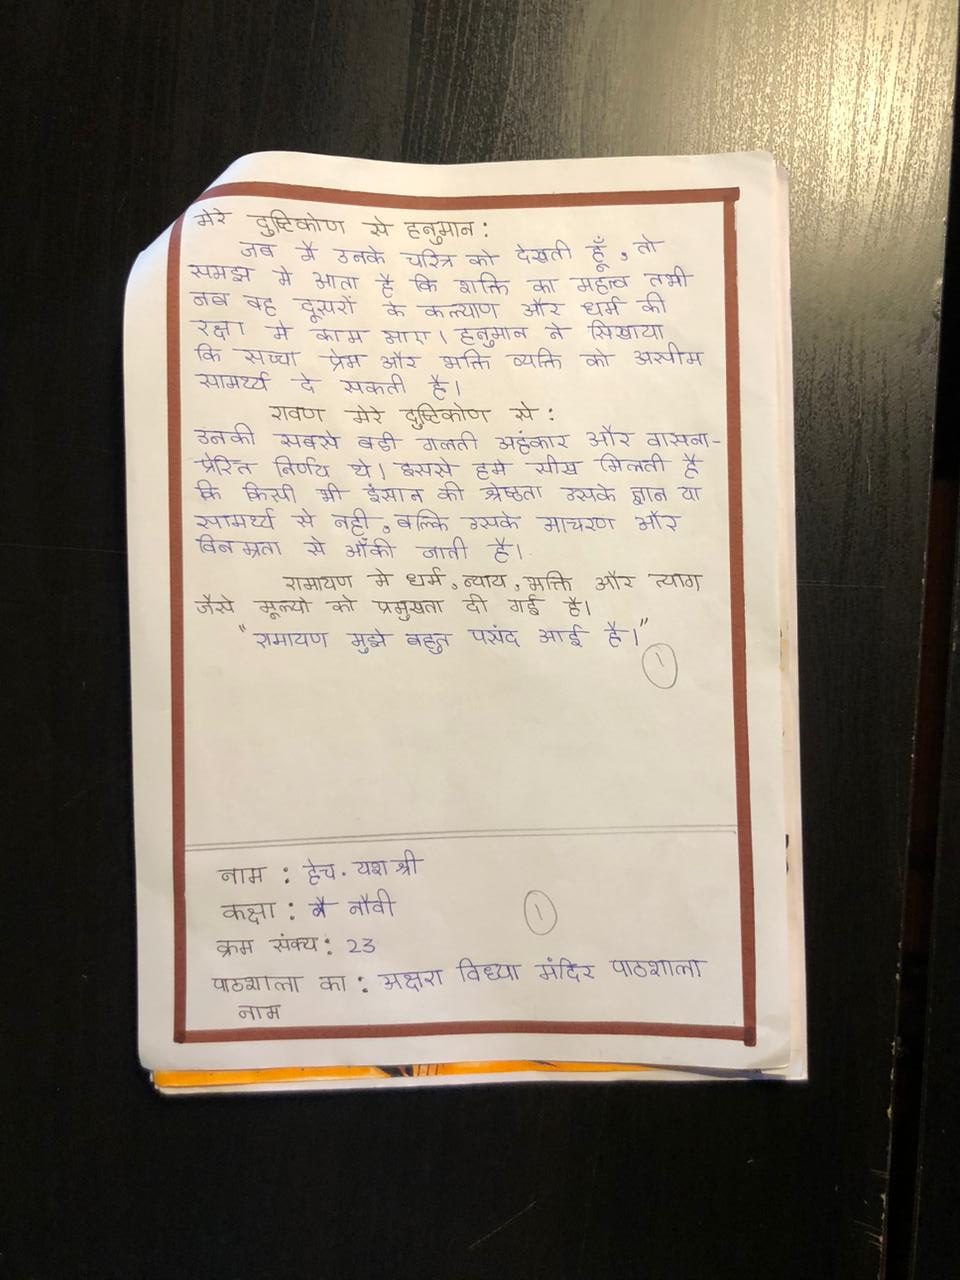 मेरे दुष्टिकोण से हनुमान :
जब मै उनके चरित्र को देखती हूँ , तो
समझ मे आता है कि शक्ति का महत्व तभी
जब वह दूसरों के कल्याण और धर्म की
रक्षा मे काम आए । हनुमान ने सिखाया
कि सच्चा प्रेम और भक्ति व्यक्ति को असीम
सामर्थ्य दे सकती है ।
रावण मेरे दुष्टिकोण से :
उनकी सबसे बडी गलती अहंकार और वासना-
प्रेरित निर्णय थे । इससे हमे सीख मिलती है
कि किसी भी इंसान की श्रेष्ठता उसके ज्ञान या
सामर्थ्य से नही , बल्कि उसके आचरण और
विनम्रता से आँकी जाती है ।
रामायण मे धर्म , न्याय , भक्ति और त्याग
जैसे मूल्यो को प्रमुखता दी गई है ।
"रामायण मुझे बहुत पसंद आई है ।"
१
नाम : हेच . यश श्री
कक्षा : नौवी
१
क्रम संक्य : 23
पाठशाला का : अक्षरा विध्या मंदिर पाठशाला
नाम